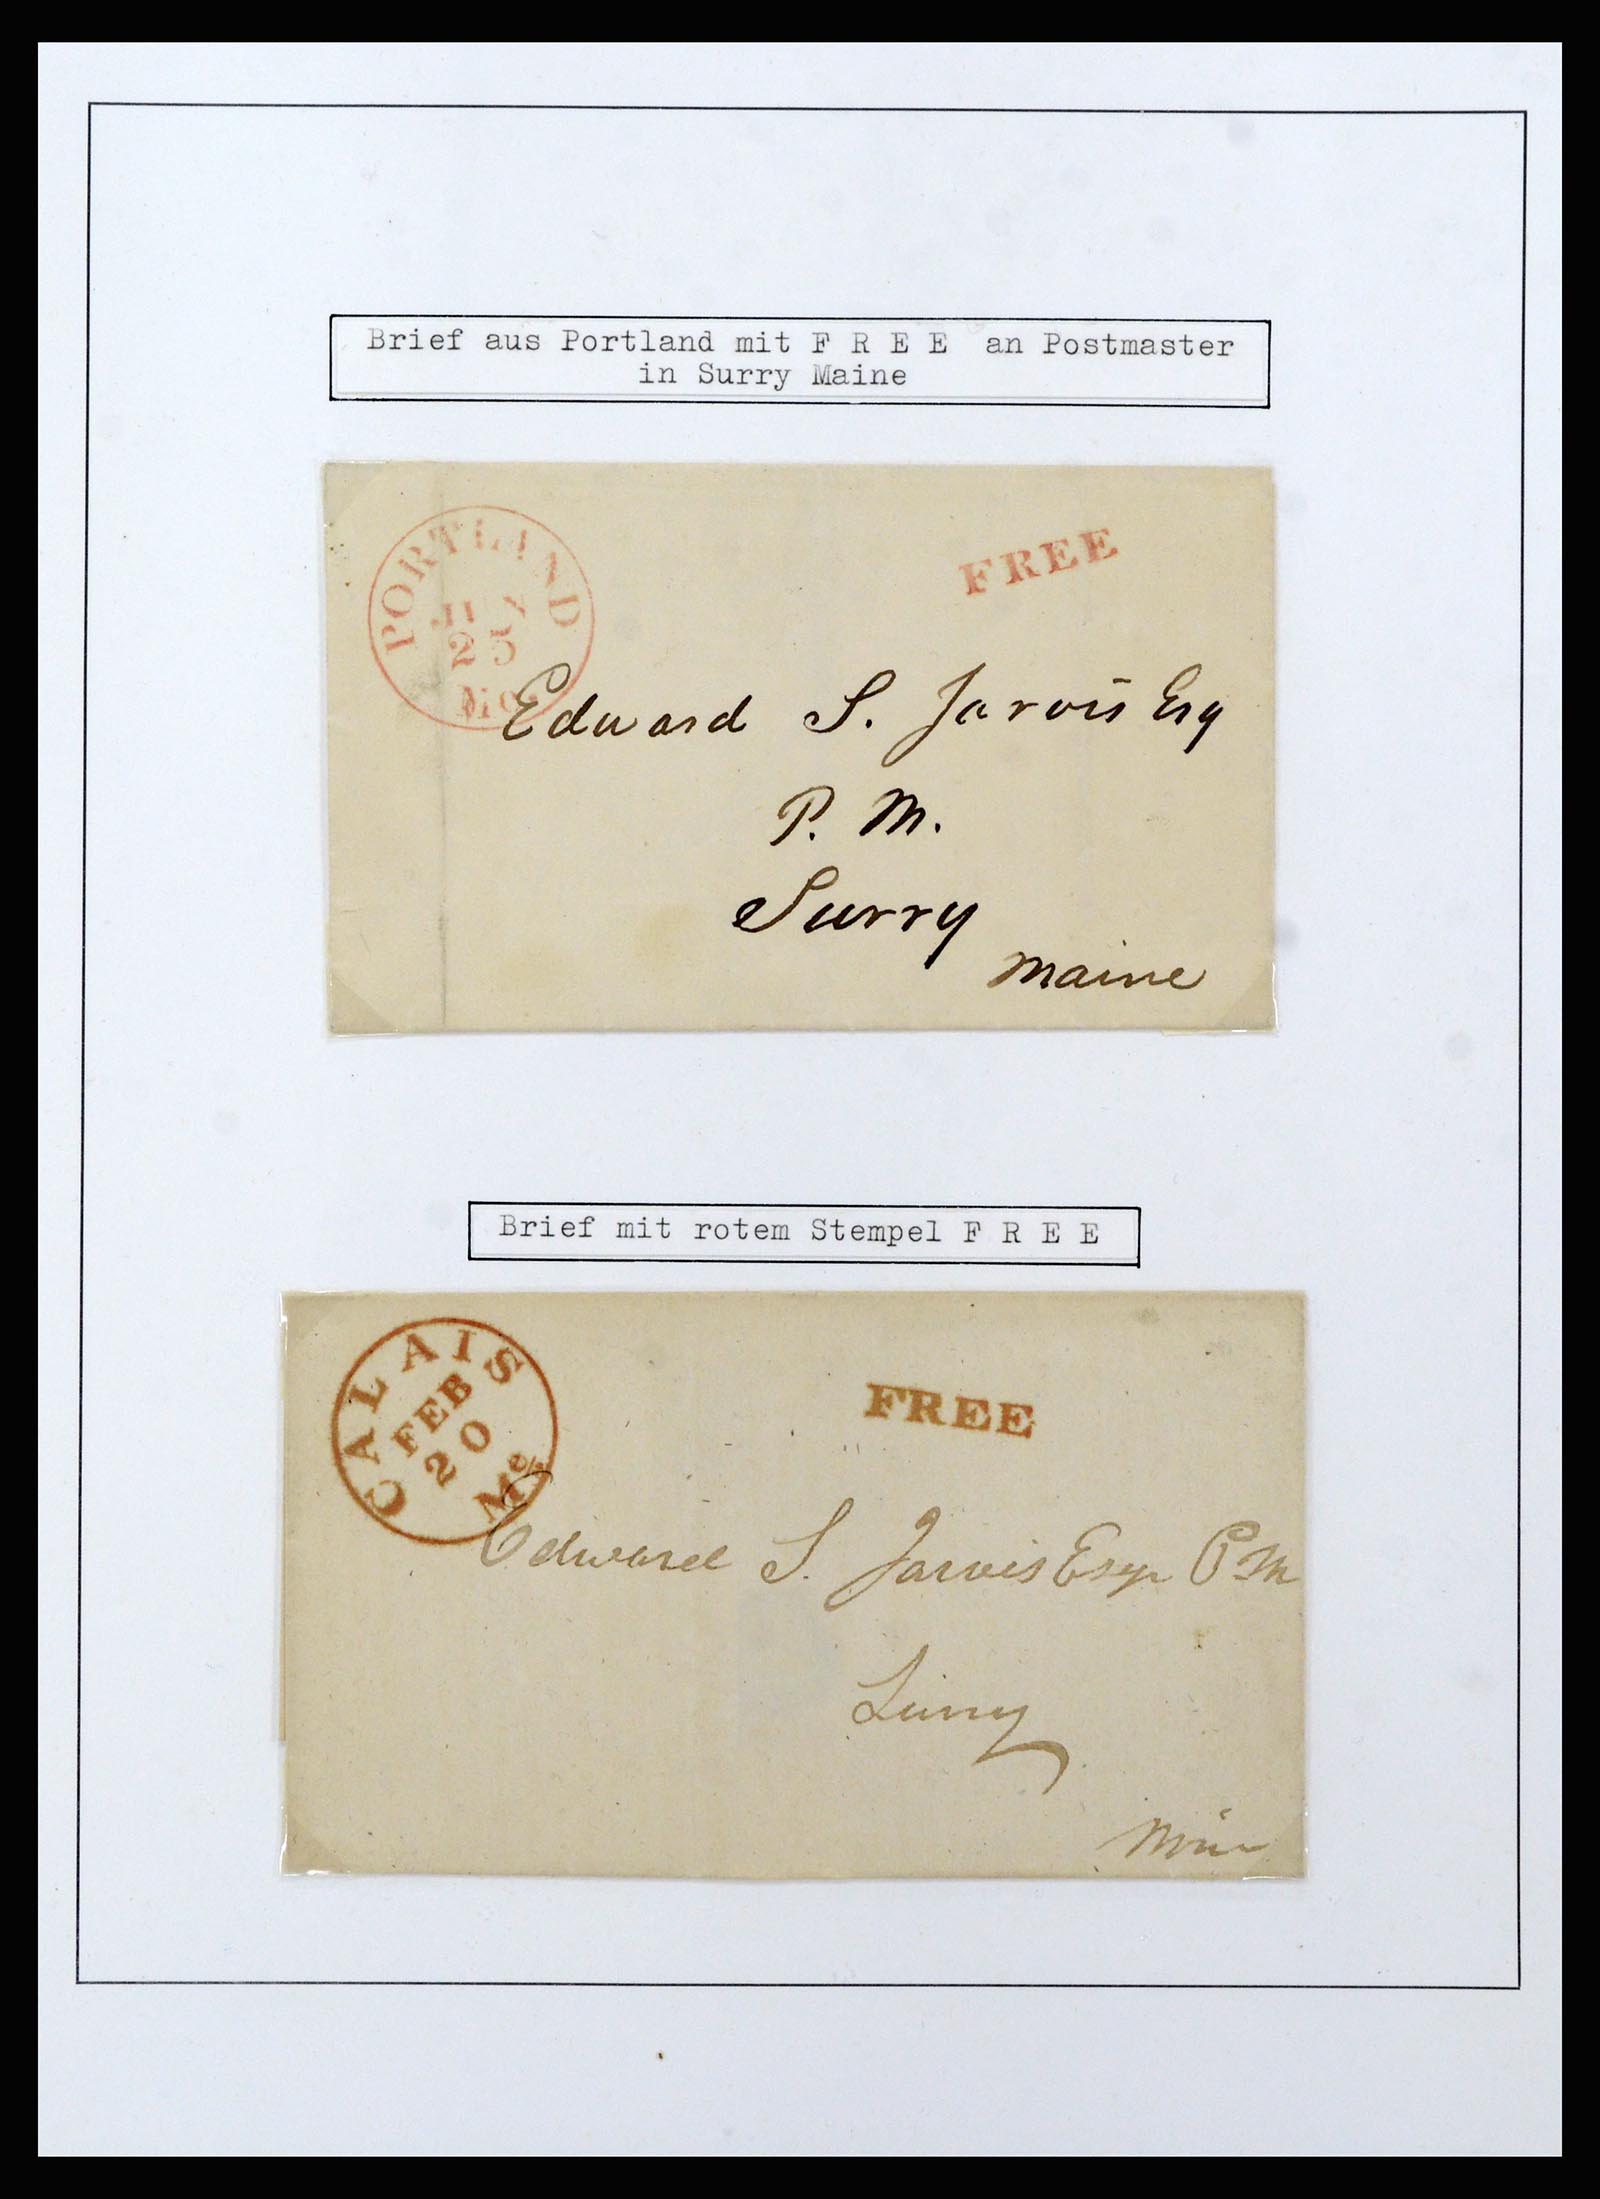 Brief aus Portland mit F R E E an Postmaster
in Surry Maine
PORTLAND
25
Me.
FREE
Edward S. Jarvis Esq
P. M.
Surry
Maine
Brief mit rotem Stempel F R E E
CALAIS
FEB
20
Me.
FREE
Edward S. Jarvis Esqr P M
Surry